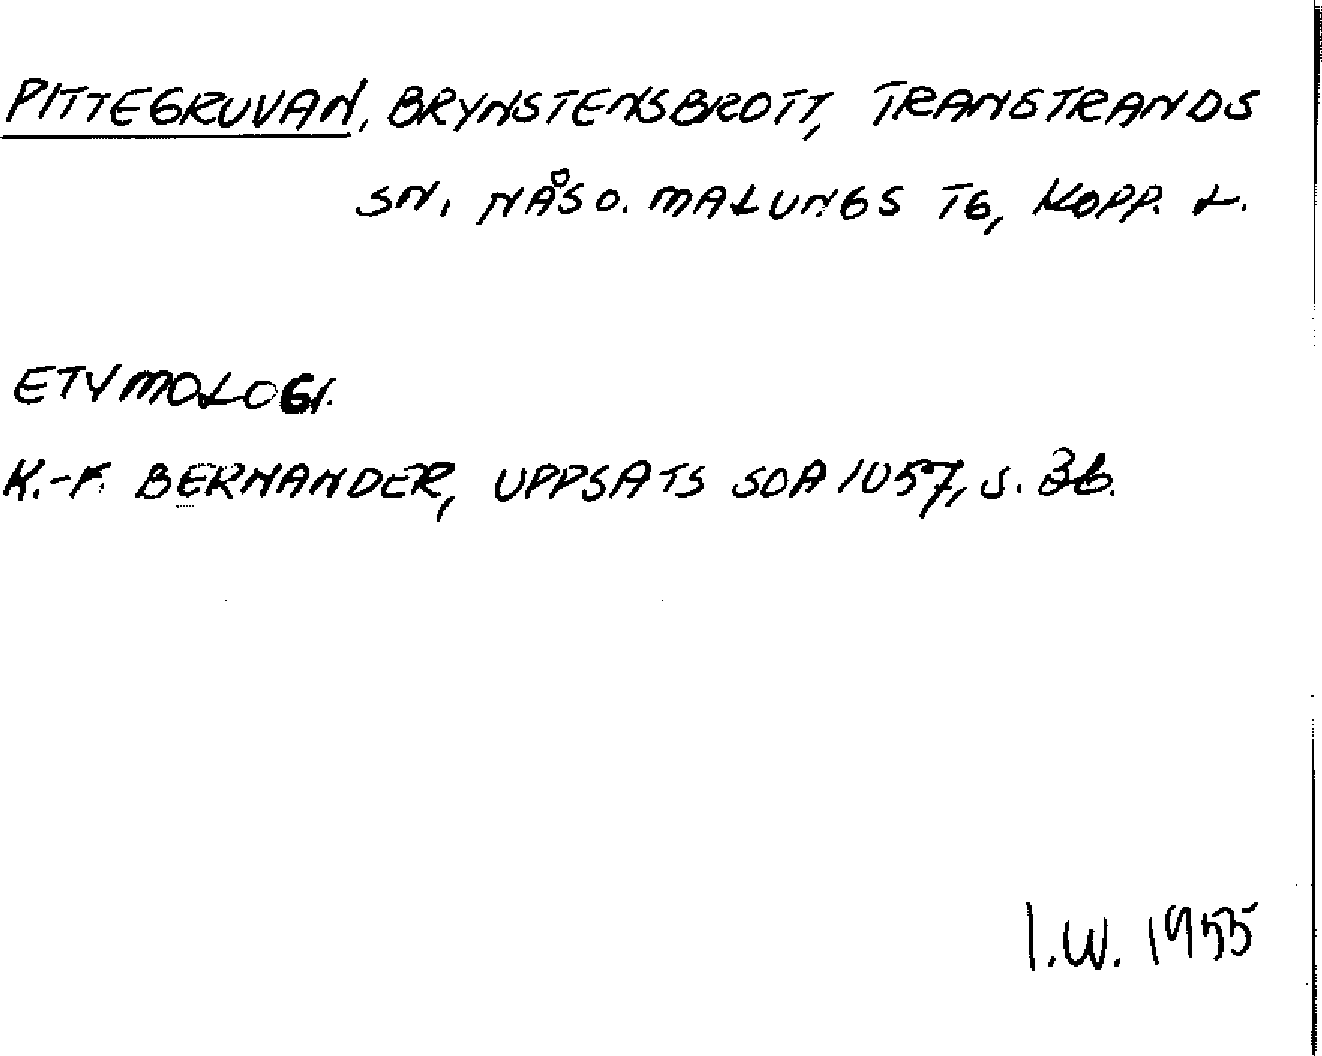 PITTEGRUVAN, BRYNSTENSBROTT, TRANSTRANDS
SN. NÅS O. MALUNGS TG, KOPP. L.
ETYMOLOGI.
K.-F. BERNANDER, UPPSATS SOA 1057, S. 36.
I.W. 1955